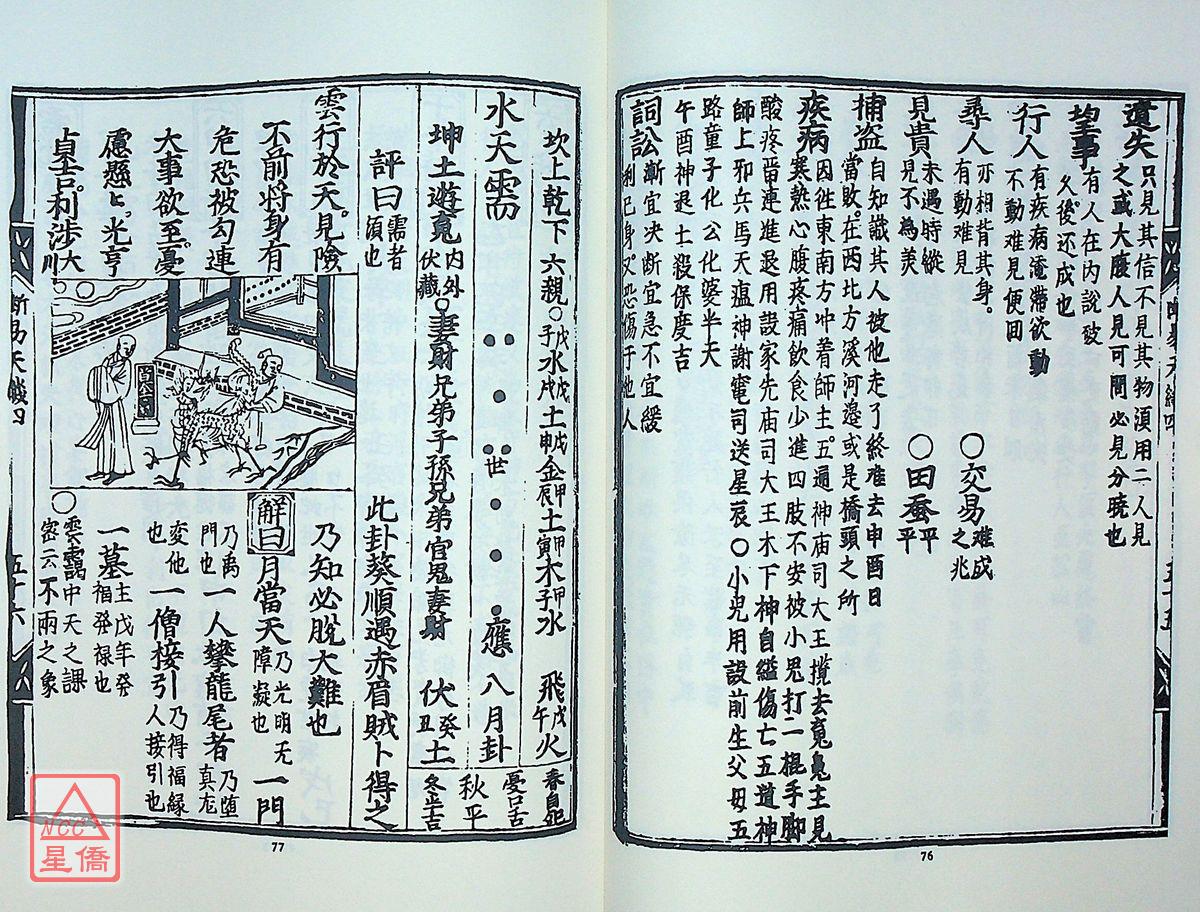 遺失只見其信不見其物須用二人見
之或大腹人見可問必見分曉也
望事有人在內說破
久後还成也
行人有疾病淹滯欲動
不動难見便回
尋人亦相背其身。
有動难見
○交易难成
之兆
見貴未遇時縱
見不為美
○田蚕平
平
捕盗自知識其人彼他走了終难去申酉日
當敗。在西北方溪河邉或是橋頭之所
疾病因往東南方冲着師主。五通神庙司大王攪去䰟鬼主見
寒熱心腹疼痛飲食少進四肢不安被小鬼打一棍手脚
酸疼畨連進退用設家先庙司大王木下神自縊傷亡五道神
師上邪兵馬天瘟神謝竈司送星辰○小児用設前生父母五
路童子化公化婆半天
午酉神退土殺保慶吉
詞訟漸宜决断宜急不宜緩
利己身。又恐傷于他人
五十五
76
坎上乾下六親○戊子水戊戌土戊申金甲辰土甲寅木甲子水
飛戊午火
水天需
世
應
八月卦
坤土遊䰟內外伏藏○妻財兄弟子孫兄弟官鬼妻財
伏癸丑土
春自死
憂口舌
秋平
冬半吉
評曰需者
須也
此卦葵順遇赤眉賊卜得之
雲行於天。見險
不前。將身有
危恐被勾連
大事欲至。憂
慮懸上。光亨
貞吉。利涉大
川
乃知必脫大難也
解曰
月當天乃光明无
障凝也
一門
乃禹
門也
一人攀龍尾者乃堕
真龙
変他
也
一僧接引乃得福緣
人接引也
一墓主戊年癸
指發禄也
○雲靄中天之課
密云不雨之象
断易天機四
五十六
77
NCC
星僑